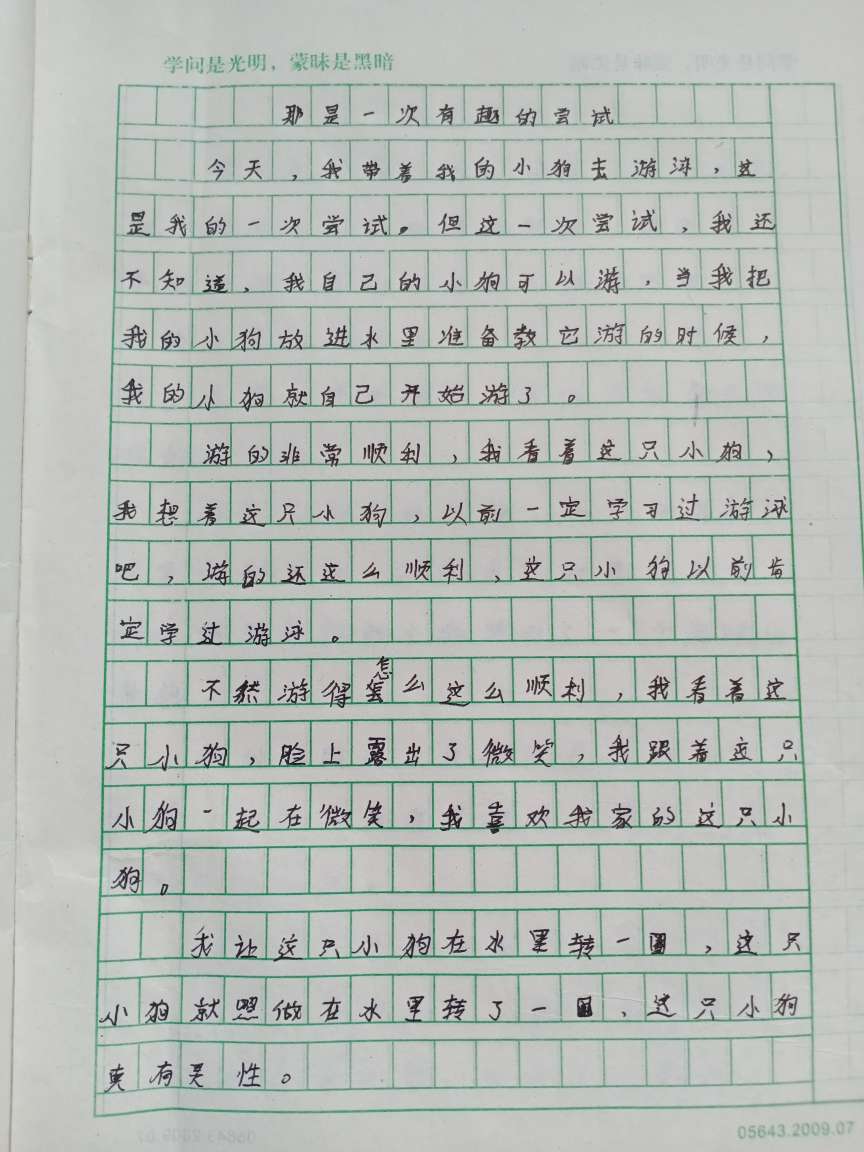 学问是光明，蒙昧是黑暗
那是一次有趣的尝试
今天，我带着我的小狗去游泳，这
是我的一次尝试。但这一次尝试，我还
不知道，我自己的小狗可以游，当我把
我的小狗放进水里准备教它游的时候，
我的小狗就自己开始游了。
游的非常顺利，我看着这只小狗，
我想着这只小狗，以前一定学习过游泳
吧，游的还这么顺利，这只小狗以前肯
定学过游泳。
不然游得怎么这么顺利，我看着这
只小狗，脸上露出了微笑，我跟着这只
小狗一起在微笑，我喜欢我家的这只小
狗。
我让这只小狗在水里转一圈，这只
小狗就照做在水里转了一圈，这只小狗
真有灵性。
05643.2009.07